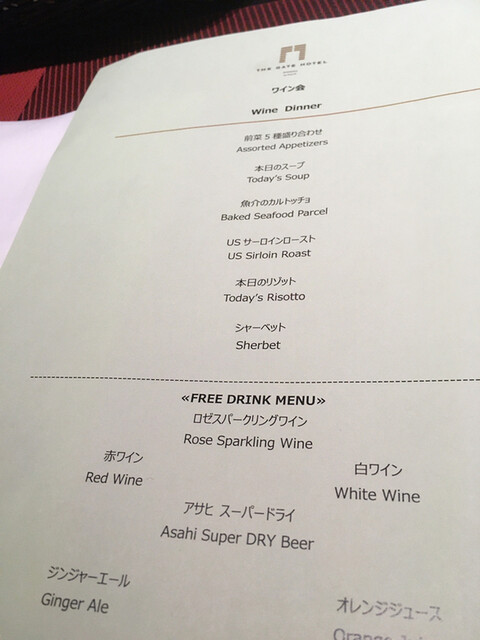 THE GATE HOTEL
ワイン会
Wine Dinner
前菜 5 種盛り合わせ
Assorted Appetizers
本日のスープ
Today's Soup
魚介のカルトッチョ
Baked Seafood Parcel
US サーロインロースト
US Sirloin Roast
本日のリゾット
Today's Risotto
シャーベット
Sherbet
«FREE DRINK MENU»
ロゼスパークリングワイン
Rose Sparkling Wine
赤ワイン
Red Wine
白ワイン
White Wine
アサヒ スーパードライ
Asahi Super DRY Beer
ジンジャーエール
Ginger Ale
オレンジジュース
Orange